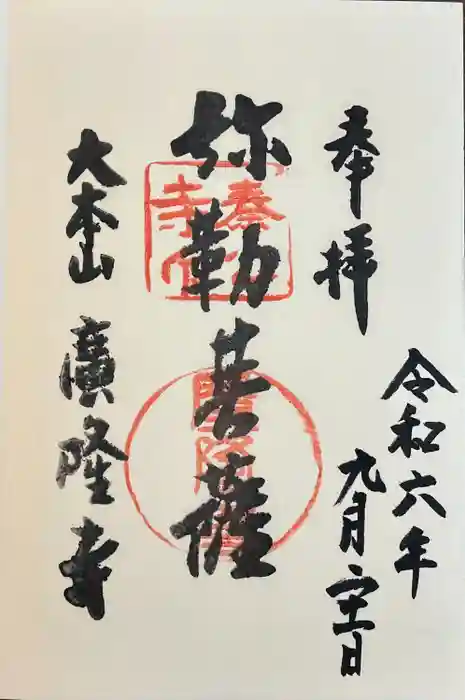 奉拝
令和六年
九月二十一日
弥勒菩薩
大本山 廣隆寺